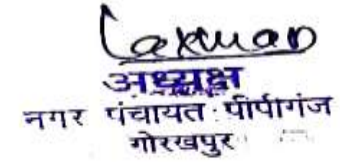 Laxman
अध्यक्ष
नगर पंचायत पीपीगंज
गोरखपुर